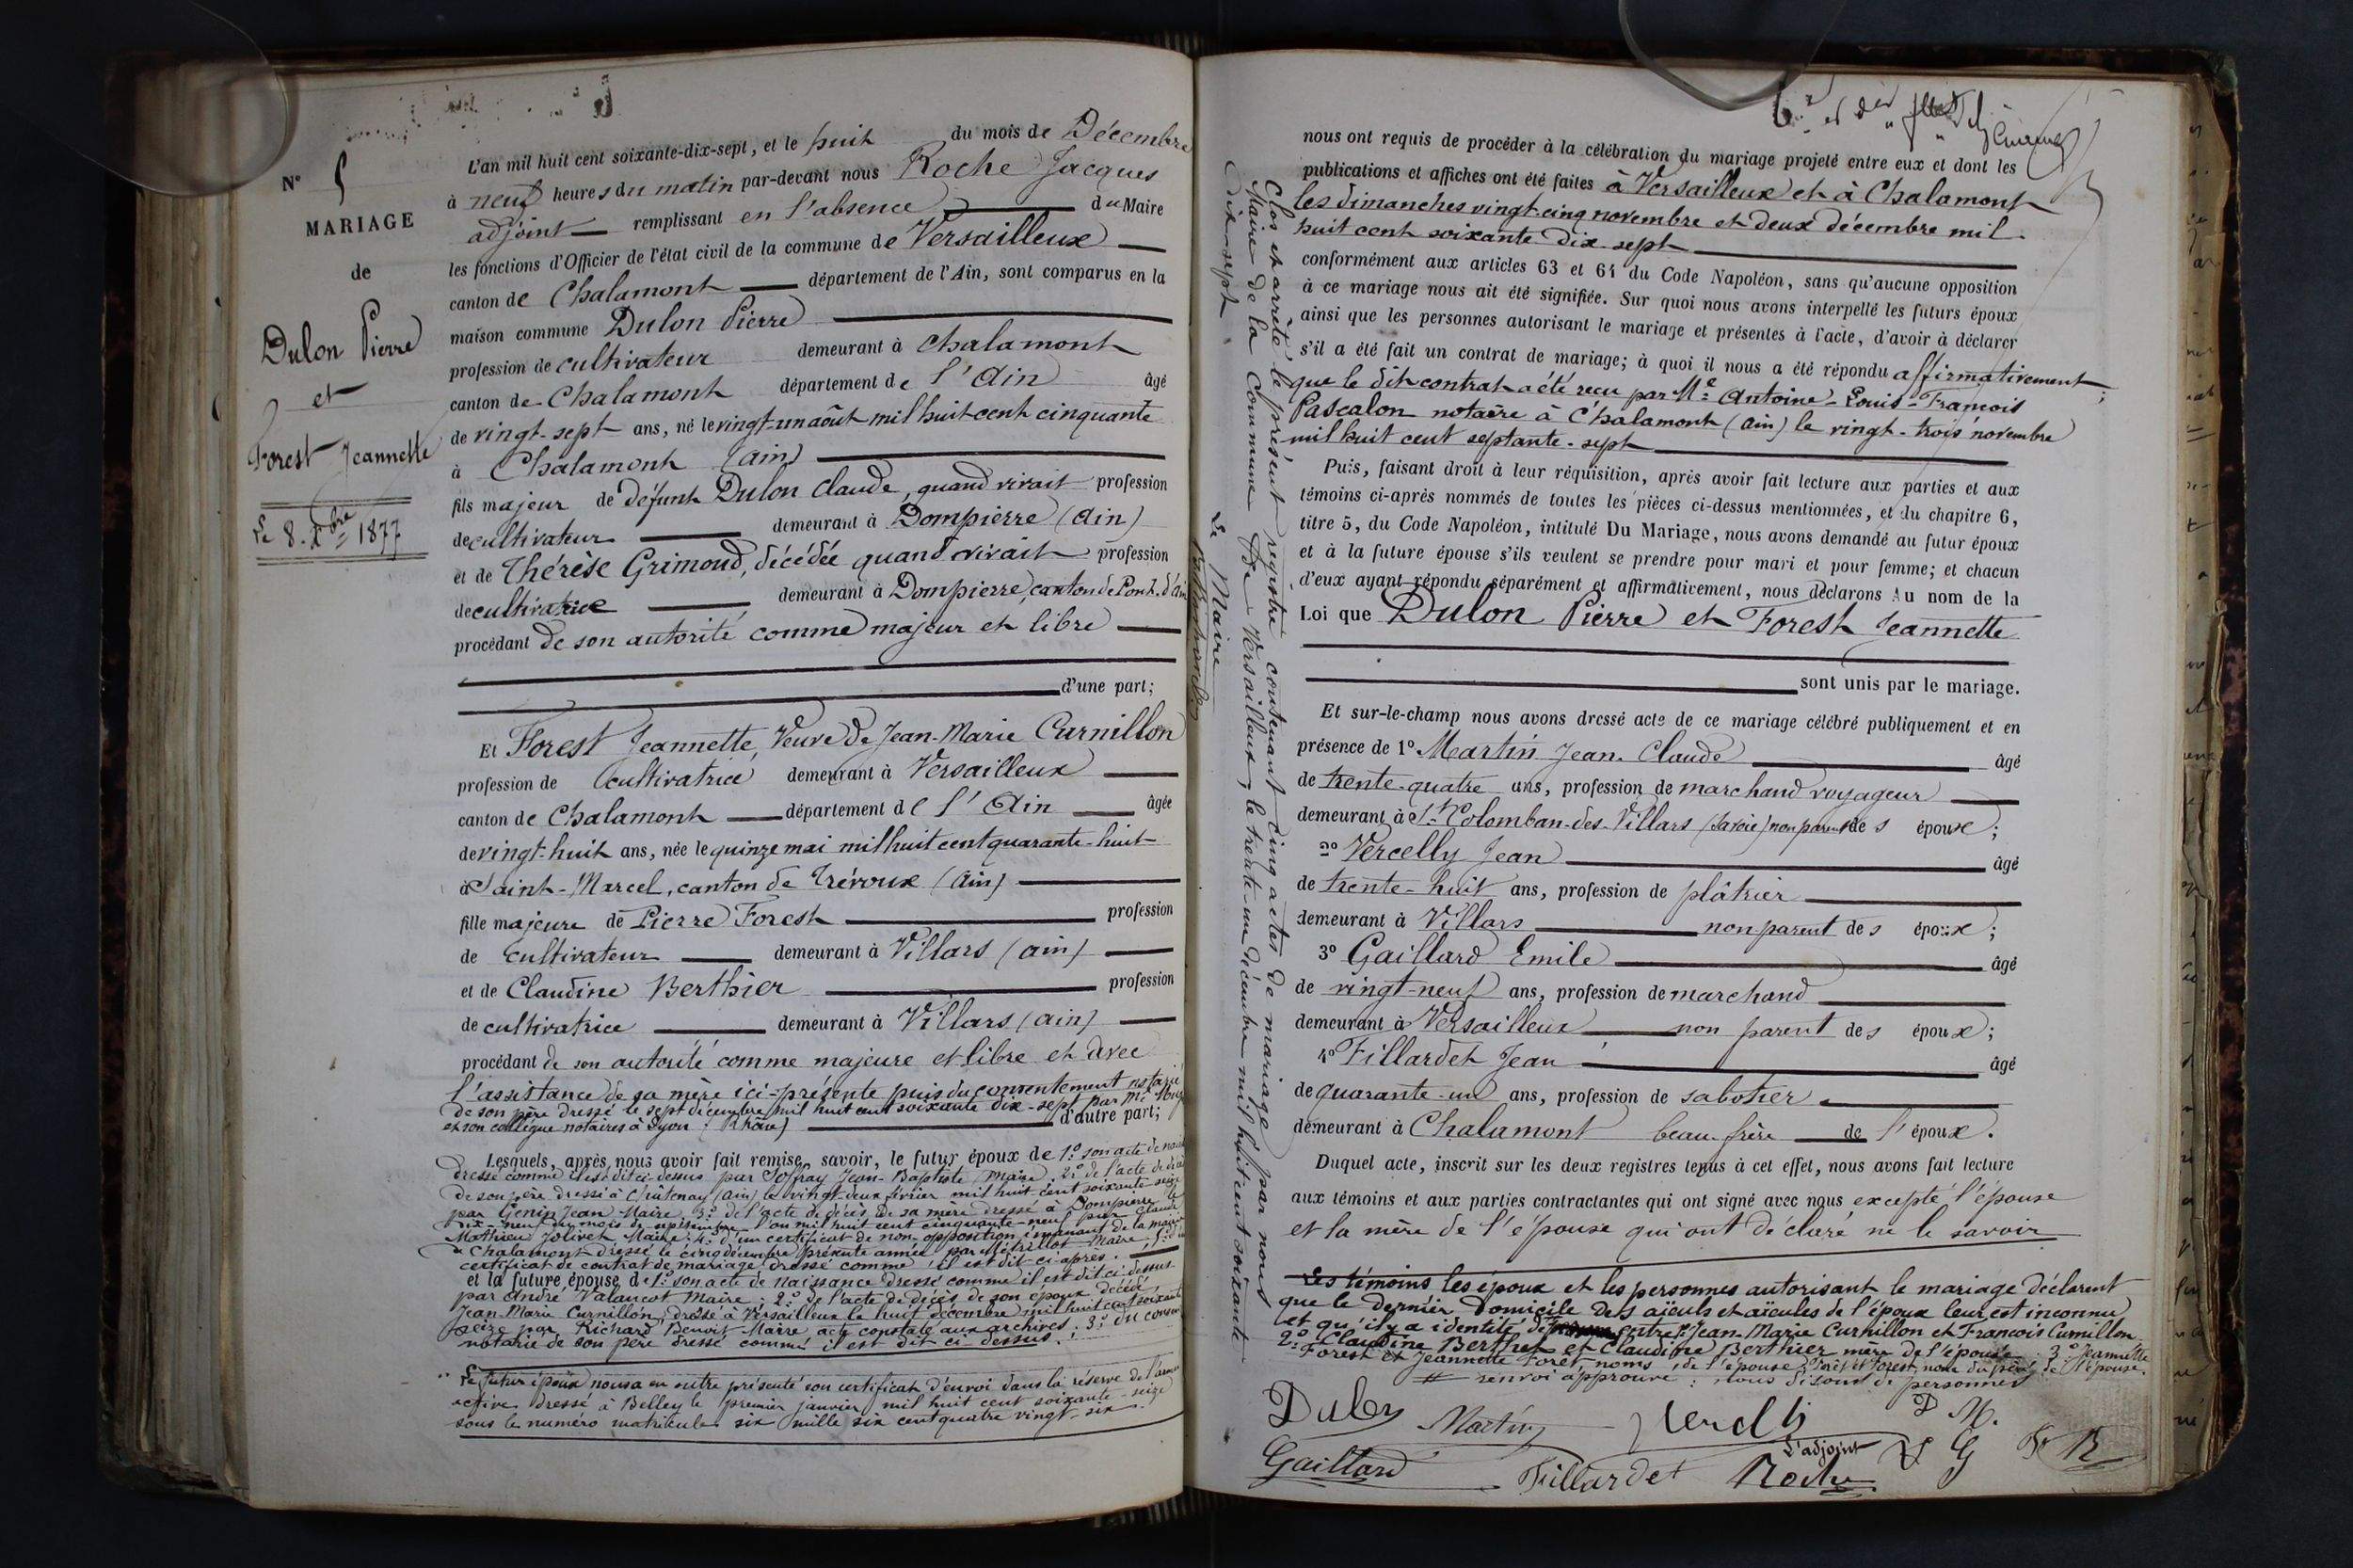 N° 5
MARIAGE
de
Dulon Pierre
et
Forest Jeannette
Le 8. Xbre 1877
L'an mil huit cent soixante-dix-sept, et le huit du mois de Décembre
à neuf heures du matin par-devant nous Roche Jacques
adjoint remplissant en l'absence du Maire
les fonctions d'Officier de l'état civil de la commune de Versailleux
canton de Chalamont département de l'Ain, sont comparus en la
maison commune Dulon Pierre
profession de cultivateur demeurant à Chalamont
canton de Chalamont département de l'Ain âgé
de vingt-sept ans, né le vingt-un août mil huit cent cinquante
à Chalamont (ain)
fils majeur de défunt Dulon Claude, quand vivait profession
de cultivateur demeurant à Dompierre (Ain)
et de Thérèse Grimoud, décédée quand vivait profession
de cultivatrice demeurant à Dompierre, canton de Pont-d'ain
procédant de son autorité comme majeur et libre
d'une part;
Et Forest Jeannette, Veuve de Jean-Marie Curnillon
profession de cultivatrice demeurant à Versailleux
canton de Chalamont département de l'Ain âgée
de vingt-huit ans, née le quinze mai mil huit cent quarante-huit
à Saint-Marcel, canton de Trévoux (Ain)
fille majeure de Pierre Forest profession
de Cultivateur demeurant à Villars (ain)
et de Claudine Berthier profession
de cultivatrice demeurant à Villars (ain)
procédant de son autorité comme majeure et libre et avec
l'assistance de sa mère ici-présente puis du consentement notarié
de son père dressé le sept décembre mil huit cent soixante dix-sept par Me
et son collègue notaires à Lyon (Rhône) d'autre part;
Lesquels, après nous avoir fait remise, savoir, le futur époux de 1° son acte de
dressé comme il est dit ci-dessus par Joffray Jean-Baptiste Maire, 2° de l'acte de
de son père dressé à Châtenay (ain) le vingt-deux février mil huit cent soixante seize
par Genin Jean Maire, 3° de l'acte de décès de sa mère dressé à Dompierre le
dix-neuf du mois de septembre l'an mil huit cent cinquante-neuf par Claude
Mathieu Jolivet Maire; 4° d'un certificat de non-opposition émanant de la mairie
de Chalamont dressé le cinq décembre présente année par Métrillot Maire; 5° d'un
certificat de contrat de mariage dressé comme il est dit ci-après.
et la future épouse, de 1° son acte de naissance dressé comme il est dit ci-dessus
par André Valancot Maire; 2° de l'acte de décès de son époux décédé
Jean-Marie Curnillon, dressé à Versailleux le huit décembre mil huit cent soixante
seize par Richard Benoit Maire, acte constaté aux archives; 3° du
notarié de son père dressé comme il est dit ci-dessus.
Le futur époux nous a en outre présenté son certificat d'envoi dans la réserve de l'armée
active dressé à Belley le premier janvier mil huit cent soixante-seize
sous le numéro matricule six mille six cent quatre vingt-six.
nous ont requis de procéder à la célébration du mariage projeté entre eux et dont les
publications et affiches ont été faites à Versailleux et à Chalamont
les dimanches vingt-cinq novembre et deux décembre mil
huit cent soixante dix-sept
conformément aux articles 63 et 64 du Code Napoléon, sans qu'aucune opposition
à ce mariage nous ait été signifiée. Sur quoi nous avons interpellé les futurs époux
ainsi que les personnes autorisant le mariage et présentes à l'acte, d'avoir à déclarer
s'il a été fait un contrat de mariage; à quoi il nous a été répondu affirmativement;
que le dit contrat a été reçu par Me Antoine-Louis-François
Pascalon notaire à Chalamont (ain) le vingt-trois novembre
mil huit cent septante-sept
Puis, faisant droit à leur réquisition, après avoir fait lecture aux parties et aux
témoins ci-après nommés de toutes les pièces ci-dessus mentionnées, et du chapitre 6,
titre 5, du Code Napoléon, intitulé Du Mariage, nous avons demandé au futur époux
et à la future épouse s'ils veulent se prendre pour mari et pour femme; et chacun
d'eux ayant répondu séparément et affirmativement, nous déclarons Au nom de la
Loi que Dulon Pierre et Forest Jeannette
sont unis par le mariage.
Et sur-le-champ nous avons dressé acte de ce mariage célébré publiquement et en
présence de 1° Martin Jean-Claude âgé
de trente-quatre ans, profession de marchand voyageur
demeurant à St Colomban-des-Villars (Savoie) non parent des époux;
2° Vercelly Jean âgé
de trente-huit ans, profession de plâtrier
demeurant à Villars non parent des époux;
3° Gaillard Emile âgé
de vingt-neuf ans, profession de marchand
demeurant à Versailleux non parent des époux;
4° Fillardet Jean âgé
de quarante-un ans, profession de sabotier
demeurant à Chalamont beau-frère de l'époux.
Duquel acte, inscrit sur les deux registres tenus à cet effet, nous avons fait lecture
aux témoins et aux parties contractantes qui ont signé avec nous, excepté l'épouse
et la mère de l'épouse qui ont déclaré ne le savoir
Les témoins les époux et les personnes autorisant le mariage déclarent
que le dernier domicile des aïeuls et aïeules de l'époux leur est inconnu
et qu'il y a identité de entre 1° Jean-Marie Curnillon et François Curnillon
2° Claudine Berthet et Claudine Berthier mère de l'épouse; 3° Jeannette
Forest et Jeannette Forêt noms de l'épouse de l'épouse.
renvoi approuvé: nous disons de personnes
Dulon Martin D M.
Gaillard Fillardet L'adjoint Roche G R
Clos et arrêté le présent registre contenant cinq actes de mariage par nous
Maire de la Commune de Versailleux, le trente-un décembre mil huit cent soixante
dix-sept
Le Maire